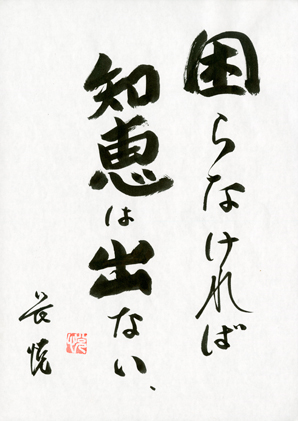 困らなければ
知恵は出ない、
長悦